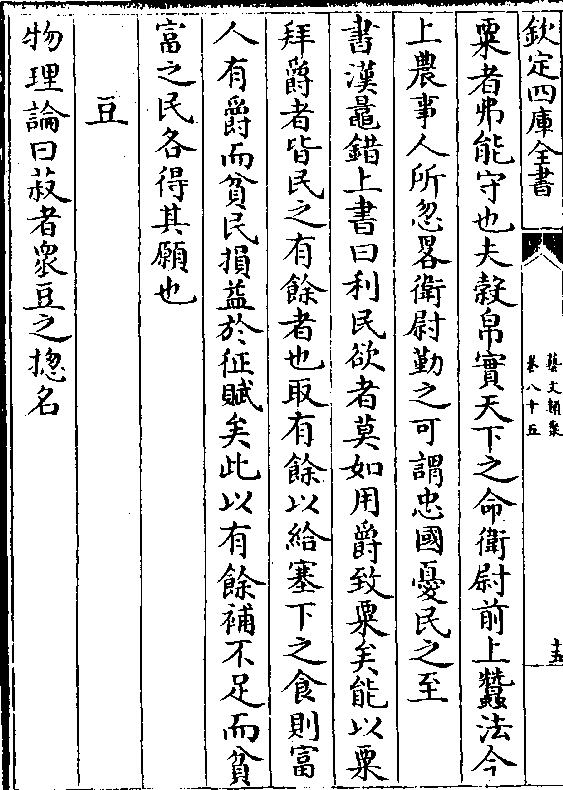 欽定四庫全書
藝文類聚
卷八十五
十五
粟者弗能守也夫穀帛實天下之命衛尉前上蠶法今
上農事人所忽畧衛尉勤之可謂忠國憂民之至
書漢鼂錯上書曰利民欲者莫如用爵致粟矣能以粟
拜爵者皆民之有餘者也取有餘以給塞下之食則富
人有爵而貧民損益於征賦矣此以有餘補不足而貧
富之民各得其願也
豆
物理論曰菽者衆豆之揔名